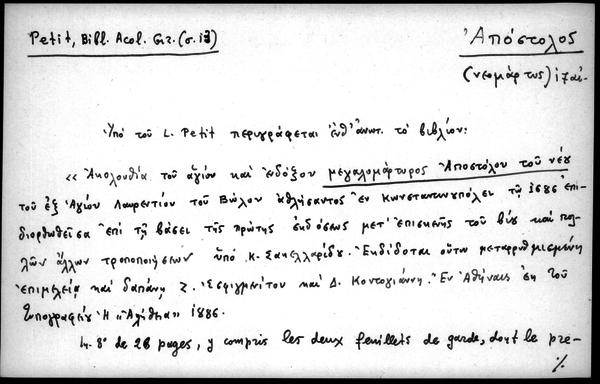 Petit, Bibl. Acol. Gr. (σ. 13)
Ἀπόστολος
(νεομάρτυς) 17 αἰ-
Ὑπό τοῦ L. Petit περιγράφεται ἐνθ' ἄνωτ. τό βιβλίον:
« Ἀκολουθία τοῦ ἁγίου καί ἐνδόξου μεγαλομάρτυρος Ἀποστόλου τοῦ νέου
τοῦ ἐξ Ἁγίου Λαυρεντίου τοῦ Βώλου ἀθλήσαντος ἐν Κωνσταντινουπόλει τῷ 1686 ἐπι-
διορθωθεῖσα ἐπί τῇ βάσει τῆς πρώτης ἐκδόσεως μετ' ἐπισκευῆς τοῦ βίου καί πολ-
λῶν ἄλλων τροποποιήσεων ὑπό Κ. Σακελλαρίδου. Ἐκδίδοται οὕτω μεταρρυθμισμένη
ἐπιμελείᾳ καί δαπάνῃ Ζ. Ἐσφιγμενίτου καί Δ. Κοντογιάννη. Ἐν Ἀθήναις ἐκ τοῦ
Τυπογραφείου Ἡ «Ἀλήθεια» 1886.
In 8° de 28 pages, y compris les deux feuillets de garde, dont le pre-
./.